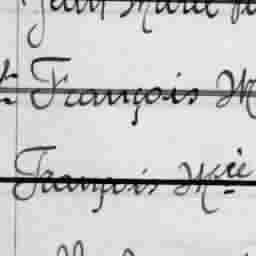 Jean Marie
François M
François Mie